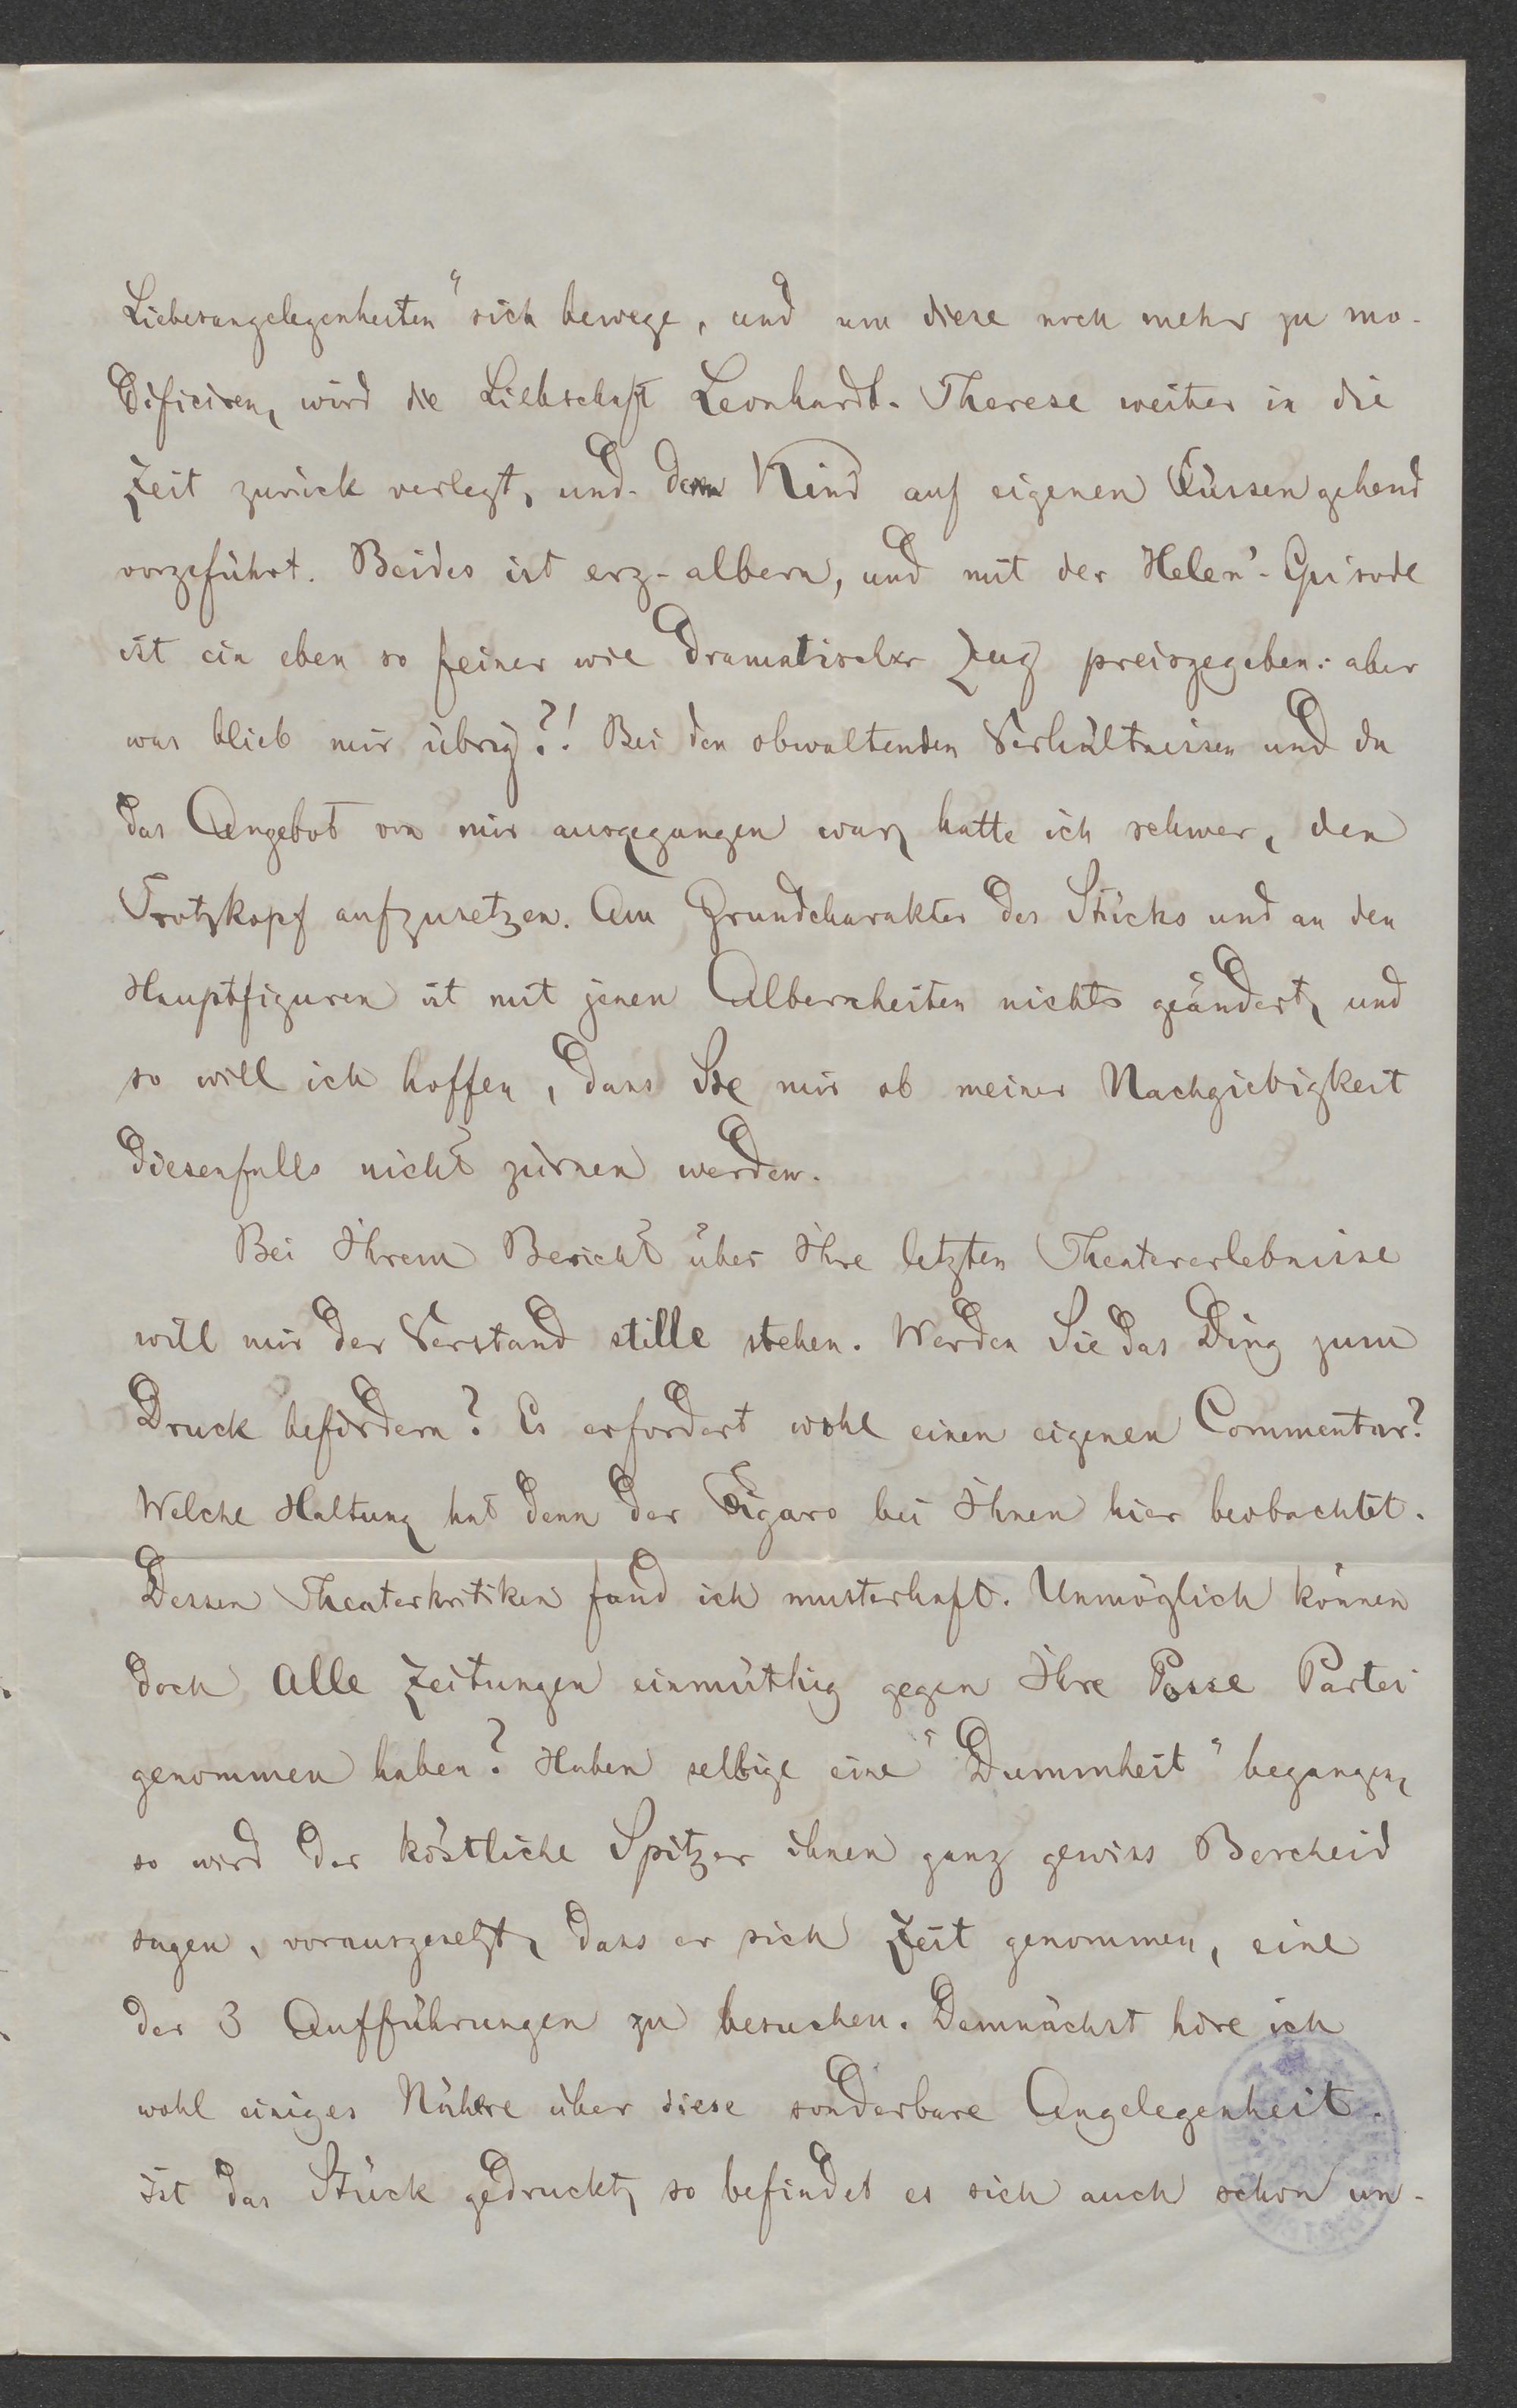 Liebesangelegenheiten" sich bewege, und um diese noch mehr zu mo-
dificiren, wird die Liebschaft Leonhardt-Therese weiter in die
Zeit zurück verlegt, und dem Kind auf eigenen Füssen gehend
vorgeführt. Beides ist erz-albern, und mit der Helen'-Episode
ist ein eben so feiner wie dramatischer Zug preisgegeben: aber
was blieb mir übrig?! Bei den obwaltenden Verhältnissen und da
das Angebot von mir ausgegangen war, hatte ich schwer, den
Trotzkopf aufzusetzen. Am Grundcharakter des Stücks und an den
Hauptfiguren ist mit jenen Albernheiten nichts geändert, und
so will ich hoffen, dass Sie mir ob meiner Nachgiebigkeit
diesenfalls nicht zürnen werden.
Bei Ihrem Bericht über Ihre letzten Theatererlebnisse
will mir der Verstand stille stehen. Werden Sie das Ding zum
Druck befördern? Es erfordert wohl einen eigenen Commentar?
Welche Haltung hat denn der Figaro bei Ihnen hier beobachtet.
Dessen Theaterkritiken fand ich musterhaft. Unmöglich können
doch alle Zeitungen einmüthig gegen Ihre Posse Partei
genommen haben? Haben selbige eine "Dummheit" begangen,
so wird der köstliche Spitzer ihnen ganz gewiss Bescheid
sagen, vorausgesetzt, dass er sich Zeit genommen, eine
der 3 Aufführungen zu besuchen. Demnächst höre ich
wohl einiges Nähere über diese sonderbare Angelegenheit.
Ist das Stück gedruckt, so befindet es sich auch schon un-